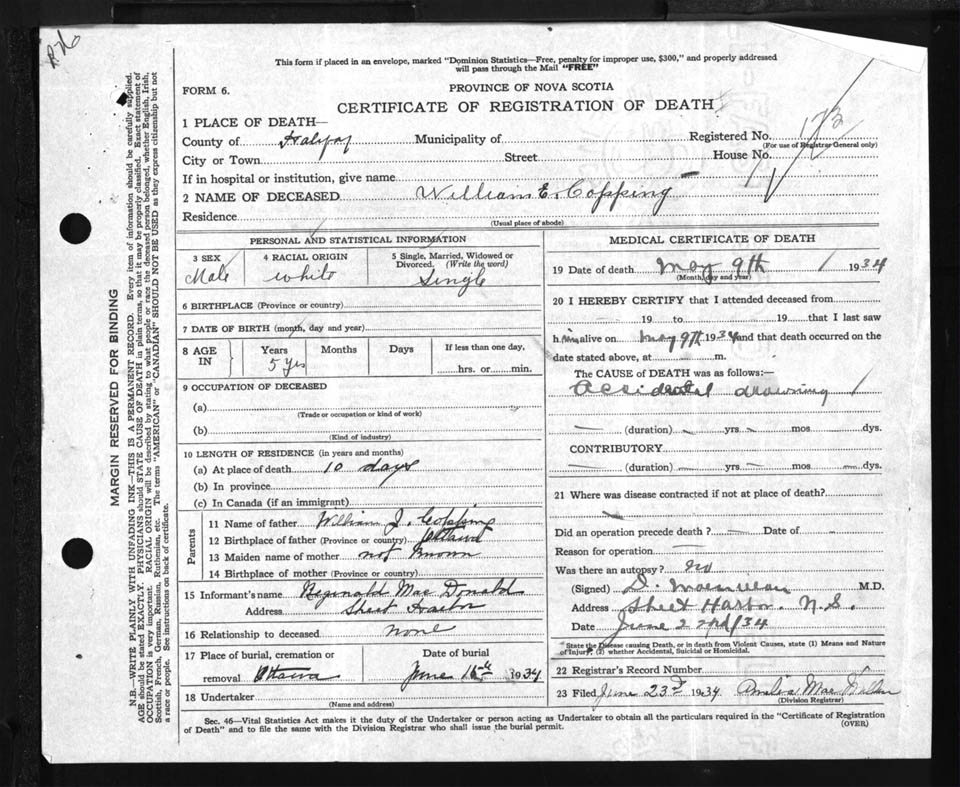 This form if placed in an envelope, marked "Dominion Statistics—Free, penalty for improper use, $300," and properly addressed
will pass through the Mail "FREE"
FORM 6.
PROVINCE OF NOVA SCOTIA
CERTIFICATE OF REGISTRATION OF DEATH
1 PLACE OF DEATH—
County of Halifax Municipality of Registered No. 173
(For use of Registrar General only)
City or Town Street House No.
If in hospital or institution, give name
2 NAME OF DECEASED William E. Copping
Residence
(Usual place of abode)
PERSONAL AND STATISTICAL INFORMATION
3 SEX 4 RACIAL ORIGIN 5 Single, Married, Widowed or
Divorced. (Write the word)
Male white Single
6 BIRTHPLACE (Province or country)
7 DATE OF BIRTH (month, day and year)
8 AGE IN Years Months Days If less than one day,
5 yrs hrs. or min.
9 OCCUPATION OF DECEASED
(a)
(Trade or occupation or kind of work)
(b)
(Kind of industry)
10 LENGTH OF RESIDENCE (in years and months)
(a) At place of death 10 days
(b) In province
(c) In Canada (if an immigrant)
Parents
11 Name of father William J. Copping
12 Birthplace of father (Province or country) Ottawa
13 Maiden name of mother not known
14 Birthplace of mother (Province or country)
15 Informant's name Reginald Mac Donald
Address Sheet Harbor
16 Relationship to deceased none
17 Place of burial, cremation or Date of burial
removal Ottawa June 16th 1934
18 Undertaker
(Name and address)
MEDICAL CERTIFICATE OF DEATH
19 Date of death May 9th 1934
(Month, day and year)
20 I HEREBY CERTIFY that I attended deceased from
19 to 19 that I last saw
him alive on May 9th 1934 and that death occurred on the
date stated above, at m.
The CAUSE OF DEATH was as follows:—
Accidental drowning
(duration) yrs mos dys.
CONTRIBUTORY
(duration) yrs mos dys.
21 Where was disease contracted if not at place of death?
Did an operation precede death? Date of
Reason for operation
Was there an autopsy? no
(Signed) M.D.
Address Sheet Harbor, N.S.
Date June 22nd/34
State the Disease causing Death, or in death from Violent Causes, state (1) Means and Nature
of Injury; (2) whether Accidental, Suicidal or Homicidal.
22 Registrar's Record Number
23 Filed June 23rd 1934 Amelia Mac
(Division Registrar)
Sec. 46—Vital Statistics Act makes it the duty of the Undertaker or person acting as Undertaker to obtain all the particulars required in the "Certificate of Registration
of Death" and to file the same with the Division Registrar who shall issue the burial permit.
(OVER)
MARGIN RESERVED FOR BINDING
N.B.—WRITE PLAINLY WITH UNFADING INK—THIS IS A PERMANENT RECORD. Every item of information should be carefully supplied.
AGE should be stated EXACTLY. PHYSICIANS should STATE CAUSE OF DEATH in plain terms, so that it may be properly classified. Exact statement of
OCCUPATION is very important. RACIAL ORIGIN will be described by stating to what people or race the deceased person belonged, whether English, Irish,
Scottish, French, German, Russian, Ruthenian, etc. The terms "AMERICAN" or "CANADIAN" SHOULD NOT BE USED as they express citizenship but not
a race or people. See instructions on back of certificate.